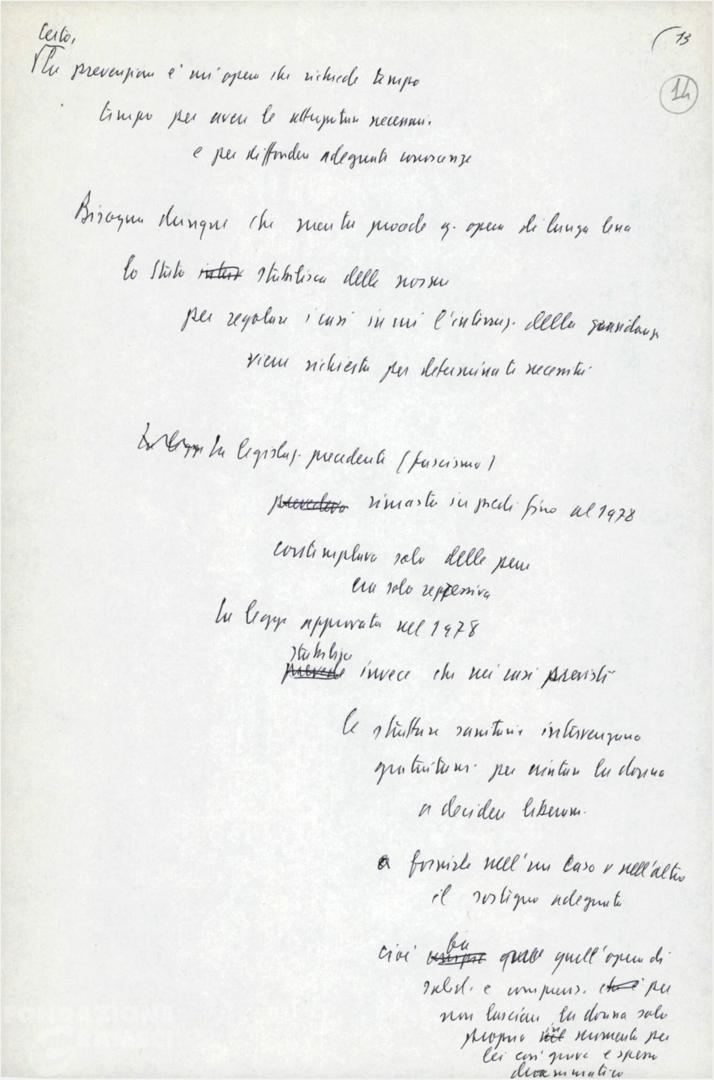 Certo,
13
14
la prevenzione è un'opera che richiede tempo
tempo per avere le attrezzature necessarie.
e per diffondere adeguate conoscenze
Bisogna dunque che mentre procede q. opera di lunga lena
lo Stato stabilisca delle norme
per regolare i casi in cui l'interruz. della gravidanza
viene richiesta per determinate necessità
La legislaz. precedente (fascismo)
prevedeva rimasta in piedi fino al 1978
contemplava solo delle pene
era solo repressiva
La legge approvata nel 1978
stabilisce
prevede invece che nei casi previsti
le strutture sanitarie intervengano
gratuitam. per aiutare la donna
a decidere liberam.
a fornirle nell'un caso o nell'altro
il sostegno adeguato
cioè quell'opera di
solid. e comprens. per
non lasciare la donna sola
proprio nel momento per
lei così grave e spesso
drammatico
FONDAZIONE